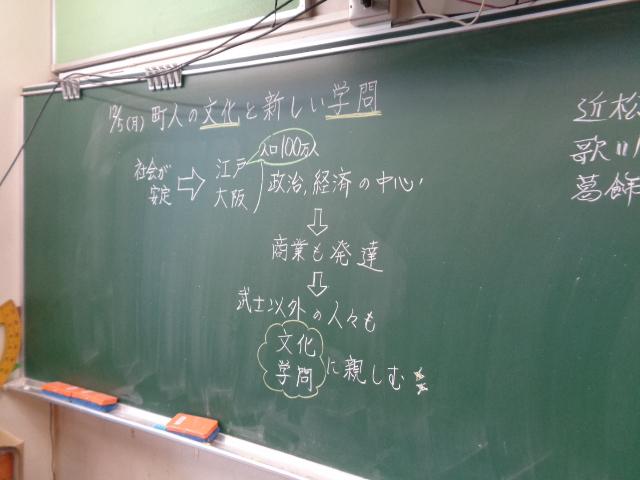 12/5(月) 町人の文化と新しい学問
社会が
安定
江戸
大阪
人口100万人
政治,経済の中心
商業も発達
武士以外の人々も
文化
学問
に親しむ
近松
歌川
葛飾